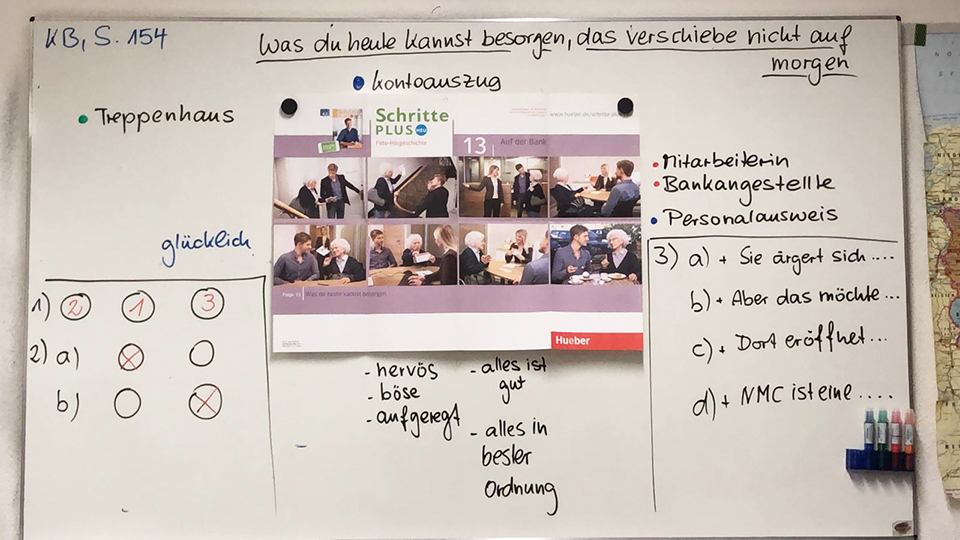 KB, S. 154
Was du heute kannst besorgen, das verschiebe nicht auf
morgen
• Kontoauszug
• Treppenhaus
Schritte
PLUS NEU
Foto-Hörgeschichte
13 Auf der Bank
Folge 13 Was du heute kannst besorgen
Hueber
• Mitarbeiterin
• Bankangestellte
• Personalausweis
glücklich
1) 2 1 3
2) a)
b)
- nervös
- böse
- aufgeregt
- alles ist
gut
- alles in
bester
Ordnung
3) a) + Sie ärgert sich ....
b) + Aber das möchte ...
c) + Dort eröffnet ...
d) + NMC ist eine ....